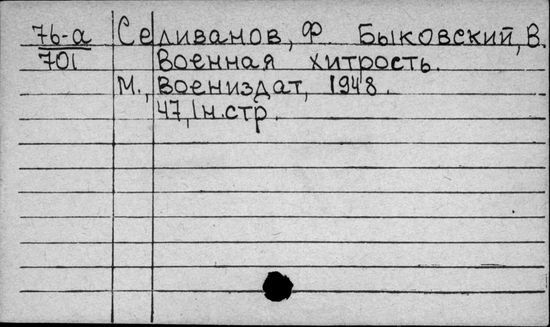 76-а Селиванов, Ф Быковский, В.
701 Военная хитрость.
М., Воениздат, 1948.
47, 1н.стр.